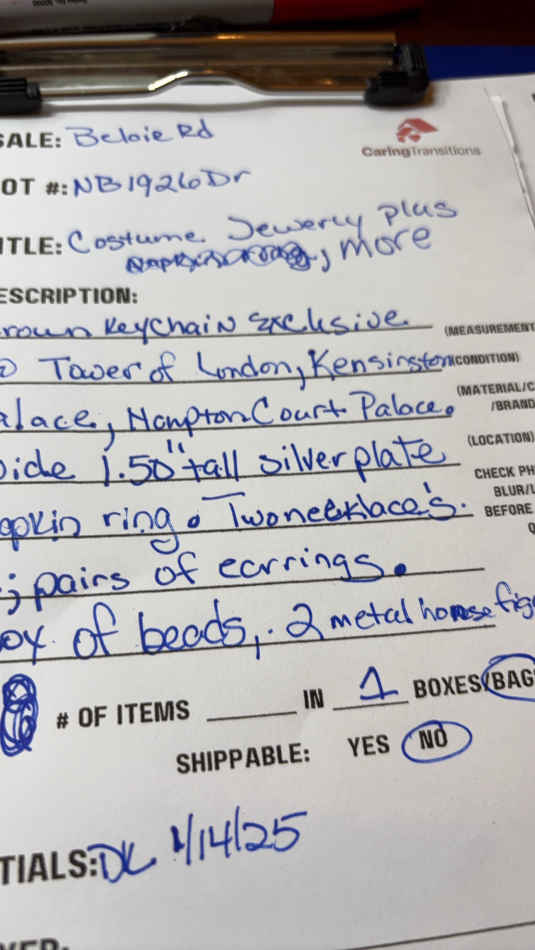 SALE: Beloie Rd
CaringTransitions
OT #: NB1926Dr
ITLE: Costume Jewerly plus
, more
ESCRIPTION:
rown Keychain Exclusive (MEASUREMENT
Tower of London, Kensinston (CONDITION)
alace, Hampton Court Palace. (MATERIAL/C
/BRAND
ide 1.50" tall silverplate (LOCATION)
apkin ring. Two necklace's. CHECK PH
BLUR/L
BEFORE
; pairs of earrings.
ox of beads, 2 metal horse fig
# OF ITEMS IN 1 BOXES/BAG
SHIPPABLE: YES NO
TIALS: DL 1/14/25